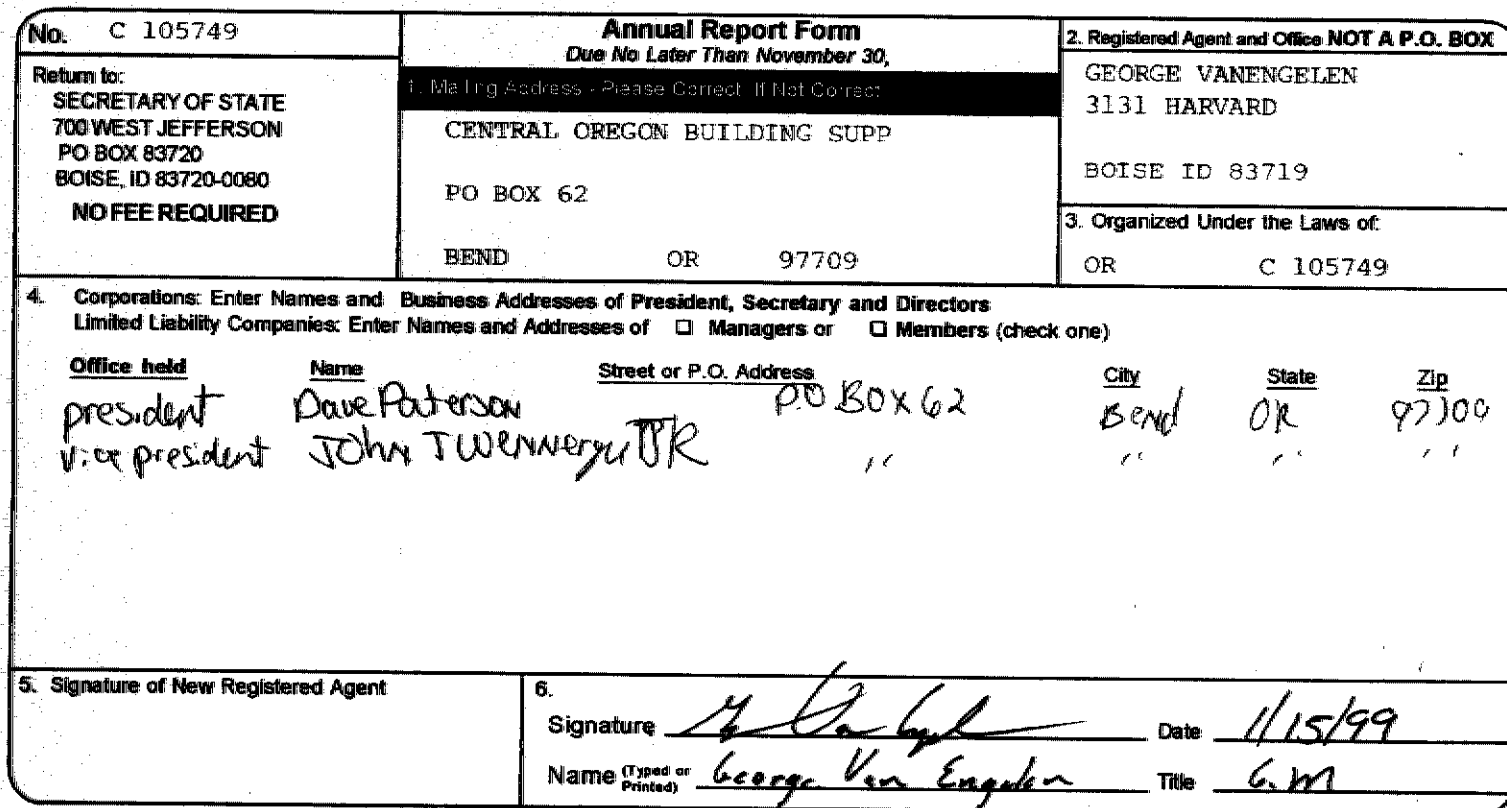 No. C 105749
Return to:
SECRETARY OF STATE
700 WEST JEFFERSON
PO BOX 83720
BOISE, ID 83720-0080
NO FEE REQUIRED
Annual Report Form
Due No Later Than November 30,
1. Mailing Address - Please Correct If Not Correct
CENTRAL OREGON BUILDING SUPP
PO BOX 62
BEND OR 97709
2. Registered Agent and Office NOT A P.O. BOX
GEORGE VANENGELEN
3131 HARVARD
BOISE ID 83719
3. Organized Under the Laws of:
OR C 105749
4. Corporations: Enter Names and Business Addresses of President, Secretary and Directors
Limited Liability Companies: Enter Names and Addresses of ☐ Managers or ☐ Members (check one)
Office held Name Street or P.O. Address City State Zip
president Dave Paterson P.O BOX 62 Bend OR
vice president John T JR " " " "
5. Signature of New Registered Agent
6.
Signature Date 1/15/99
Name (Typed or Printed) George Van Engelen Title G.M